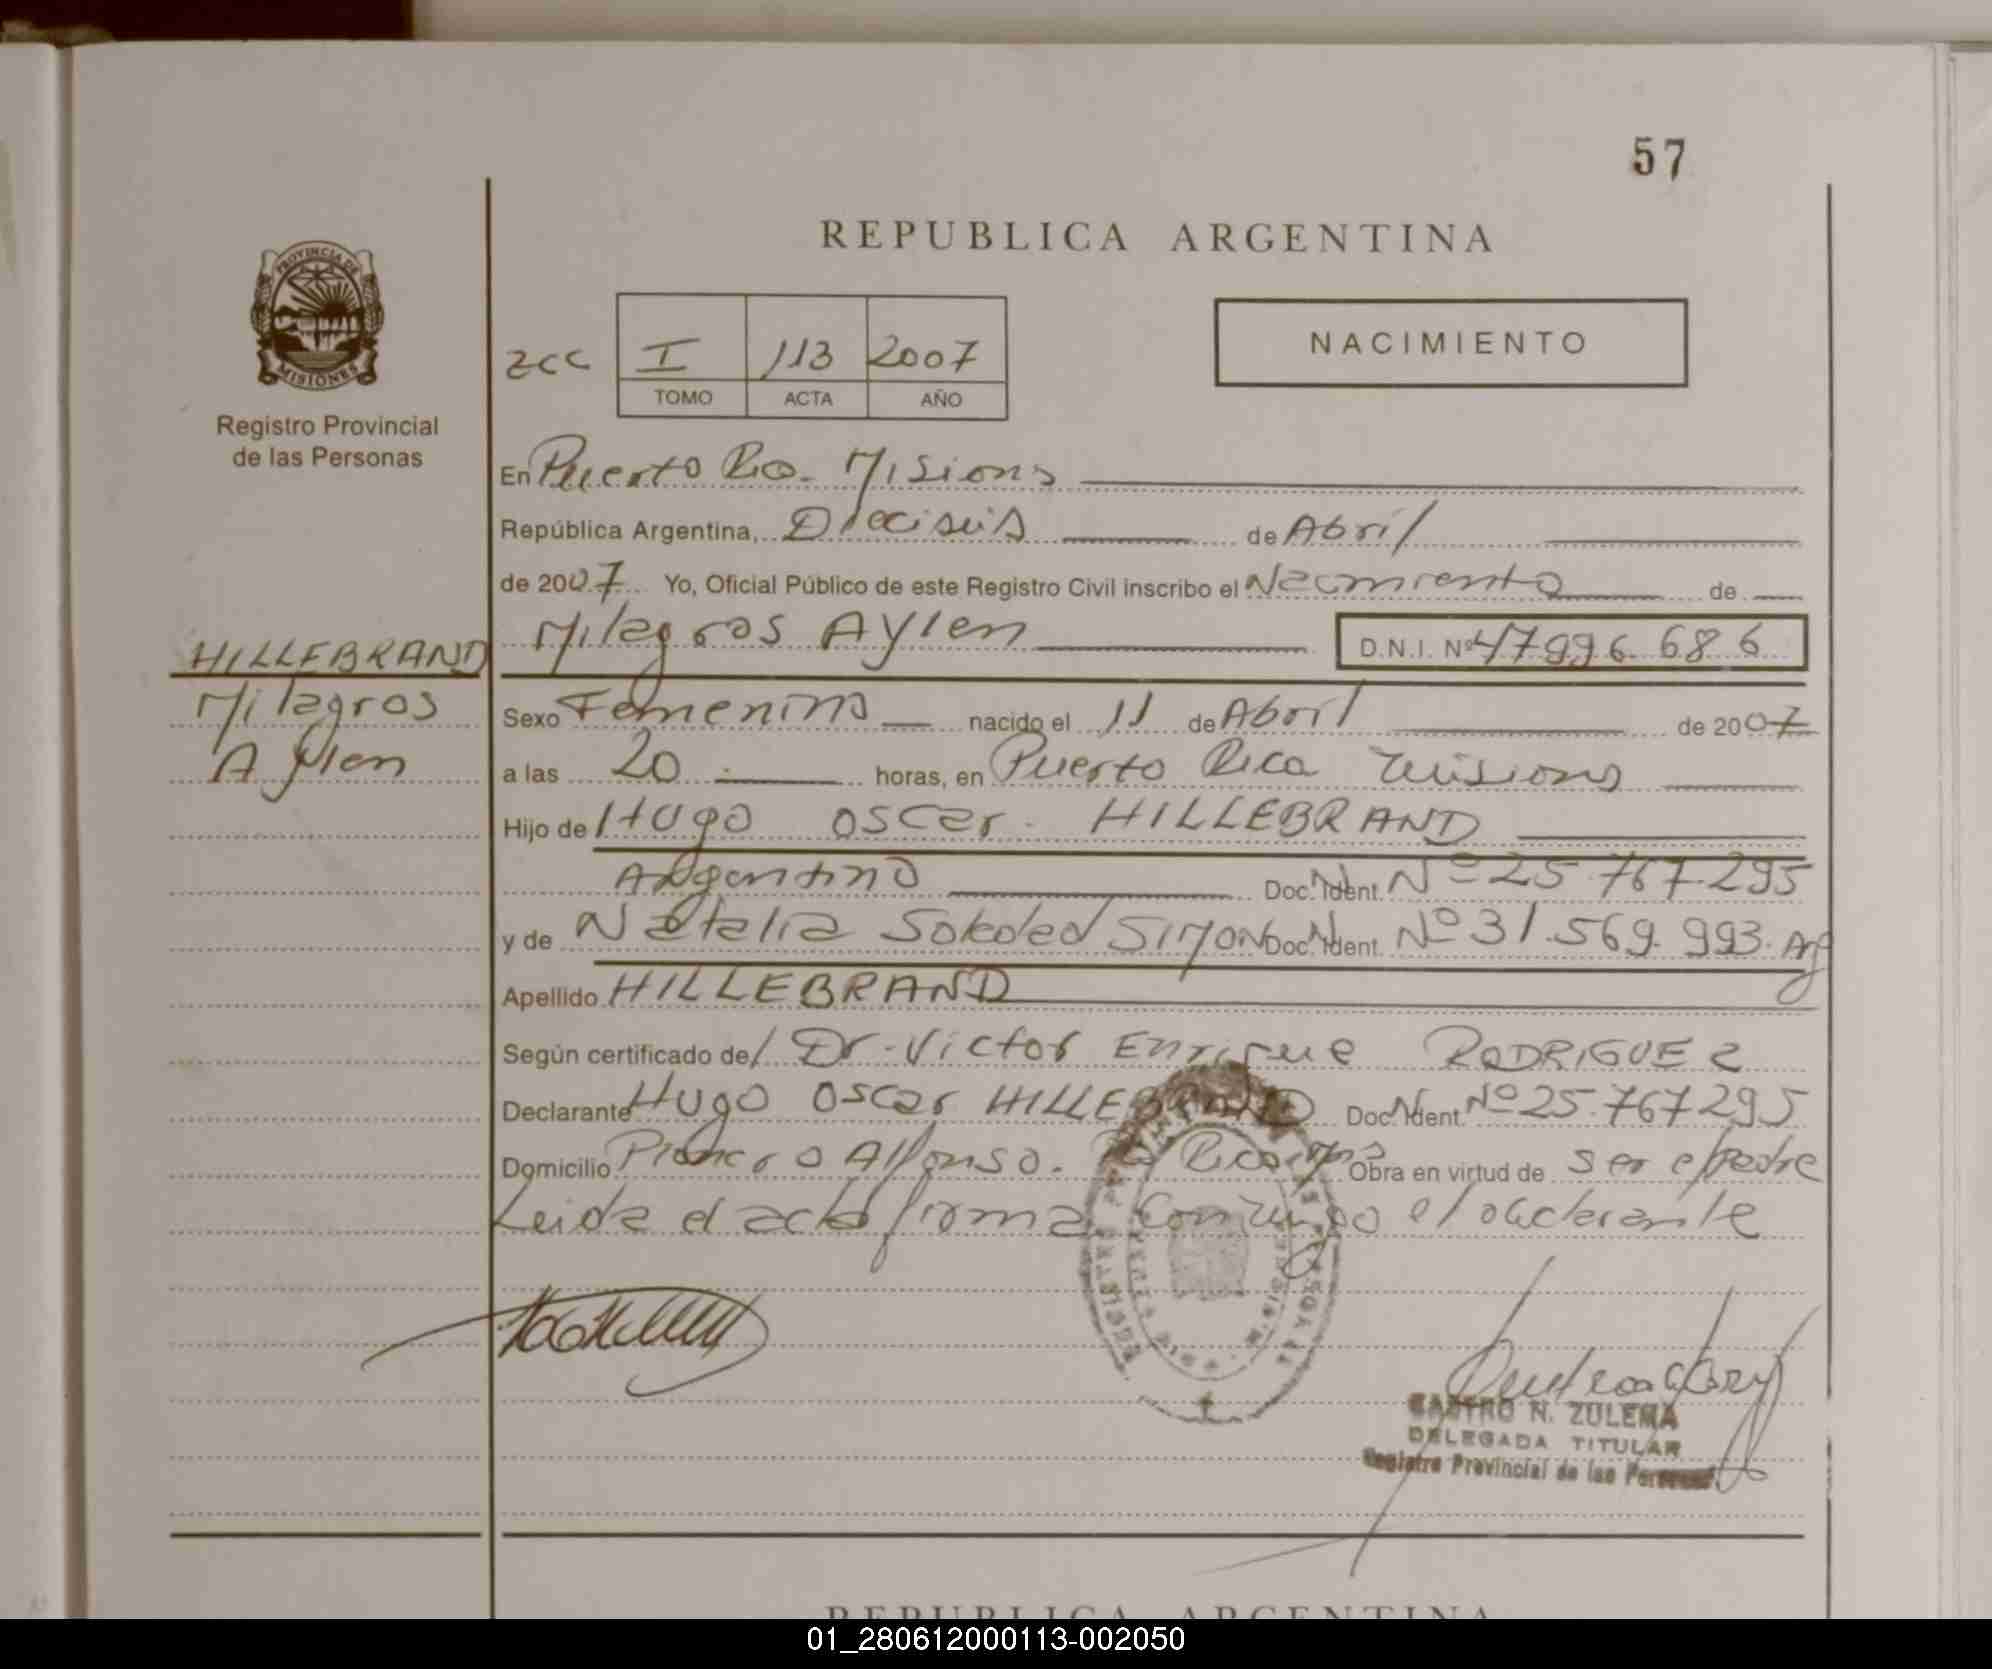 57
REPUBLICA ARGENTINA
PROVINCIA DE
MISIONES
Registro Provincial
de las Personas
I 113 2007
TOMO ACTA AÑO
NACIMIENTO
En Puerto Rico. Misiones
República Argentina, Dieciseis de Abril
de 2007 Yo, Oficial Público de este Registro Civil inscribo el Nacimiento de
HILLEBRAND
Milagros Aylen D.N.I. Nº 47996.686
Milagros
Aylen
Sexo Femenino nacido el 11 de Abril de 2007
a las 20 horas, en Puerto Rico Misiones
Hijo de Hugo Oscar HILLEBRAND
Argentino Doc. Ident. Nº 25.767.295
y de Natalia Soledad SIMON Doc. Ident. Nº 31.569.993. Arg
Apellido HILLEBRAND
Según certificado de/ Dr. Victor Enrique RODRIGUEZ
Declarante Hugo Oscar HILLEBRAND Doc. Ident. Nº 25.767.295
Domicilio Pionero Alfonso. Rico Obra en virtud de ser el padre
Leida el acta firma conmigo el declarante
CASTRO N. ZULEMA
DELEGADA TITULAR
Registro Provincial de las Personas
REPUBLICA ARGENTINA
01_280612000113-002050